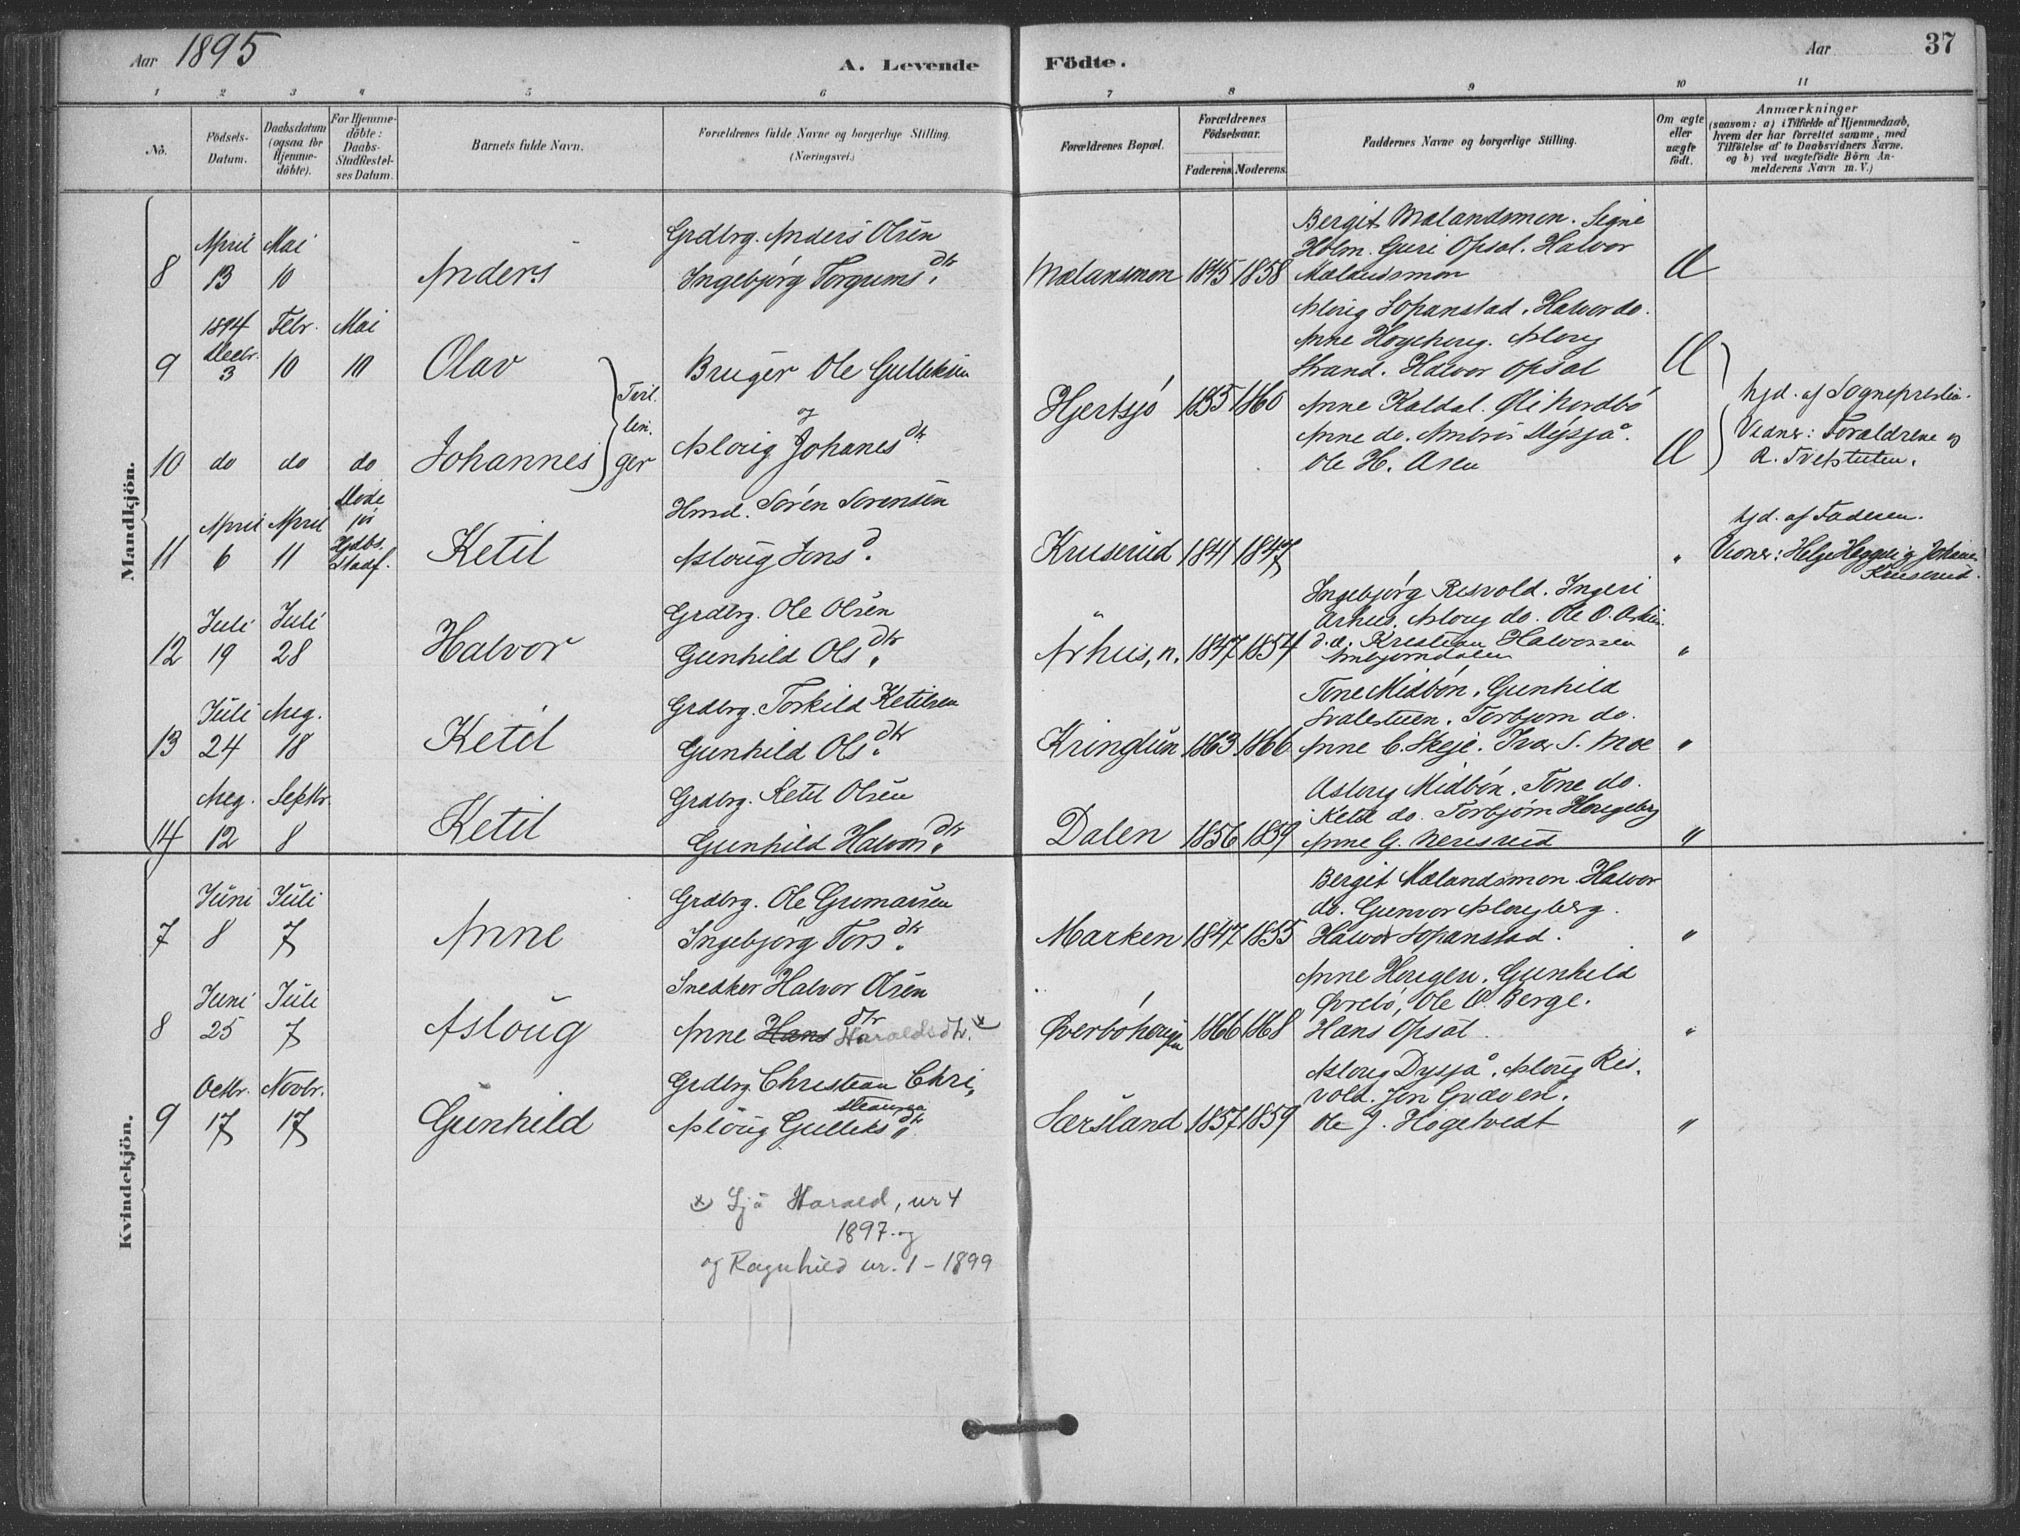 Aar 1895
A. Levende Födte.
Aar
37
1 2 3 4 5 6 7 8 9 10 11
No.
Födsels-Datum.
Daabsdatum (ogsaa for Hjemme-döbte).
For Hjemme-döbte: Daabs-Stadfæstel-ses Datum.
Barnets fulde Navn.
Forældrenes fulde Navne og borgerlige Stilling. (Næringsvei.)
Forældrenes Bopæl.
Forældrenes Födselsaar.
Faderens. Moderens.
Faddernes Navne og borgerlige Stilling.
Om ægte eller uægte födt.
Anmærkninger
(saasom: a) i Tilfælde af Hjemmedaab,
hvem der har forrettet samme, med
Tilföielse af to Daabsvidners Navne.
og b) ved uægtefödte Börn An-
melderens Navn m. V.)
Mandkjön.
8 April 13 Mai 10
Anders
Grdbrg. Anders Olsen
Ingebjörg Torgrims dtr.
Mælandsmon 1845 1858
Bergit Mælandsmon. Signe
Holm. Guri Opsal. Halvor
Mælandsmon
9 1894 Decbr. 3 Febr. 10 Mai 10
Olav
Bruger Ole Gulleksen
og
Tvil-
lin-
ger
Hjertsjö 1855 1860
Asloug Sopanstad. Halvor do.
Anne Høgeberg. Asloug
Strand. Halvor Opsal
10 do do do
Johannes
Asloug Johanes dtr
Anne Kaldal. Ole Nordbö
Anne do. Ambrös Dysjå.
Ole H. Åsen
hjd. af Sogneprestin.
Vidner: Forældrene og
R. Tvetstuten.
11 April 6 April 11 Döde för Hjdbs. Stadf.
Ketil
Hmd. Sörén Sorensen
Asloug Jons d.
Kruserud 1841 1847 "
hjd. af Faderen.
Vidner: Helge Heggelig Johanes
Kruserud.
12 Juli 19 Juli 28
Halvor
Grdbrg. Ole Olsen
Gunhild Ols dtr.
Århus, n. 1847 1854
Ingebjörg Risvold. Ingeri
Århus. Asloug do. Ole O.
d.æ. Kristian Halvorsen
"
13 Juli 24 Aug. 18
Ketil
Grdbrg. Torkild Ketilsen
Gunhild Ols dtr.
Kringlun 1863 1866
Tone Midbön. Gunhild
Svalestuen. Torbjorn do.
Anne C. Skeje. Ivar S. Moe
"
14 Aug. 12 Septbr. 8
Ketil
Grdbrg. Ketil Olsen
Gunhild Halvors dtr.
Dalen 1856 1859
Asloug Midbön. Tone do.
Ketil do. Torbjörn Haugeberg
Anne G. Neresrud
"
Kvindekjön.
7 Juni 8 Juli 7
Anne
Grdbrg. Ole Gunnarsen
Ingebjörg Tors dtr.
Marken 1847 1855
Bergit Mælandsmon Halvor
do. Gunvor Aslougberg.
Halvor Sopanstad.
"
8 Juni 25 Juli 7
Asloug
Snedker Halvor Olsen
Anne Hans dtr Haraldsdtr. x
Överböhaugen 1866 1868
Anne Haugen. Gunhild
Övrebö, Ole O. Berge.
Hans Opsal.
"
9 Octbr. 17 Novbr. 17
Gunhild
Grdbrg. Christian Chri-
stiansen
Asloug Gulleks dtr.
Særsland 1857 1859
Asloug Dysjå. Asloug Ris-
vold. Jon Gudven.
Ole J. Högetvedt
"
x Sjå Harald, nr 4
1897. og
og Ragnhild nr. 1 - 1899